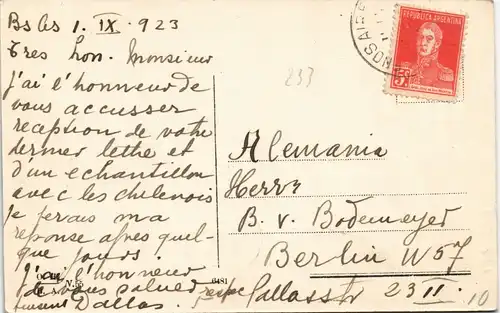 Bs As 1. IX. 923
tres hon. Monsieur
j'ai l'honneur de
vous accusser
reception de votre
dernier lethe et
d'un echantillon
avec les chilenois
je ferais ma
reponse apres quel-
que jours.
J'ai l'honneur
de vous saluer respec
tueusement Dallas.
REPUBLICA ARGENTINA
5
NOS AIRE
233
Alemania
Herrn
B. v. Bodemeyer
Berlin W57
Gallasstr 23 II
10
6481